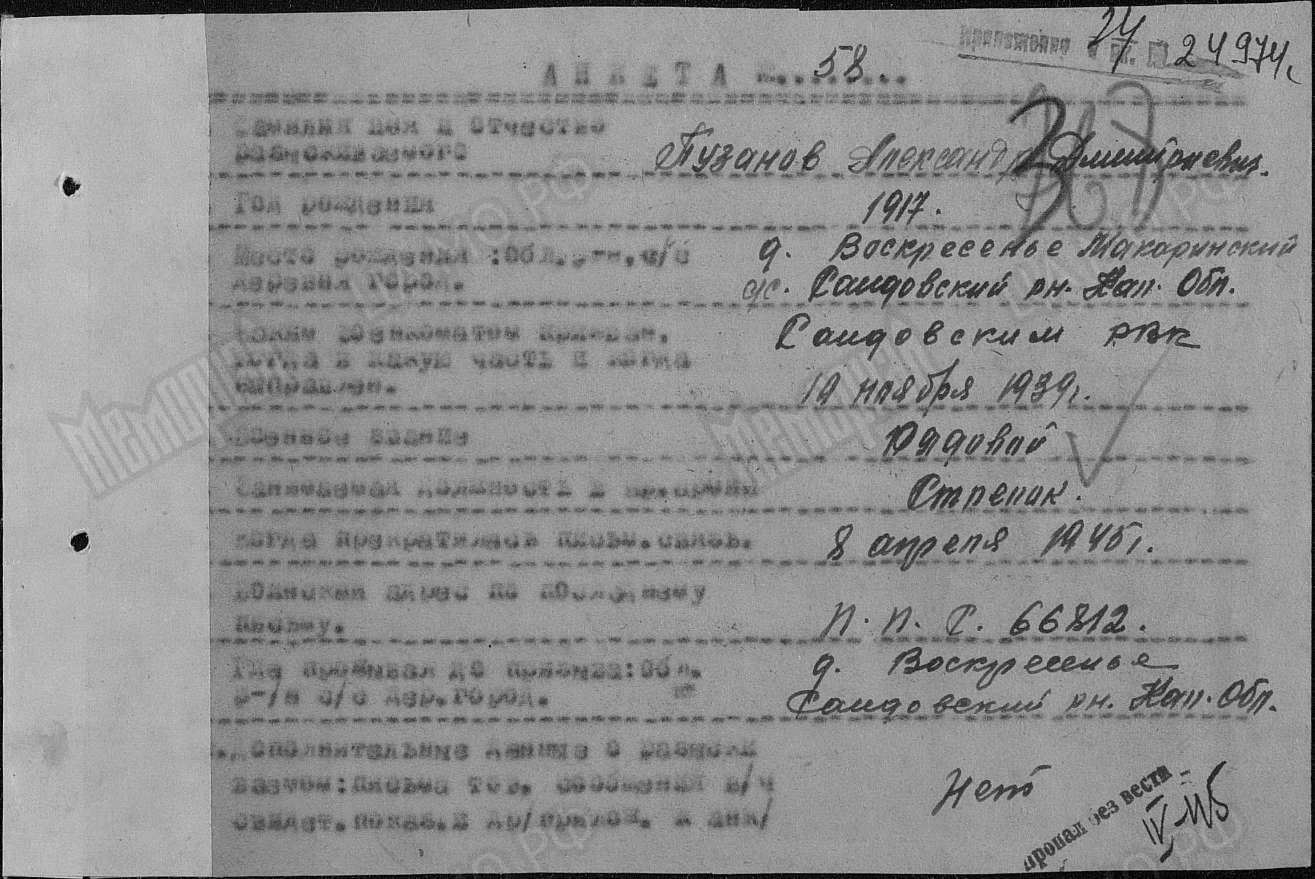 24
24974г
АНКЕТА №.. 58...
Фамилия имя и отчество
разыскиваемого Пузанов Александр Дмитриевич.
Год рождения 1917.
Место рождения :Обл.р-н,с/с д. Воскресенье Макаринский
деревня город. с/с. Сандовский рн. Кал. Обл.
Каким военкоматом призван, Сандовским РВК
когда в какую часть и когда
направлен. 19 ноября 1939г.
Военное звание Рядовой
Занимаемая должность в кр.армии Стрелик.
Когда прекратилась письм.связь. 8 апреля 1945г.
Воинский адрес по последнему
письму. П. П. С. 66812.
Где проживал до призыва:Обл. д. Воскресенье
р-/н с/с дер.город. Сандовский рн. Кал. Обл.
Дополнительные данные о разыски
ваемом: письма тов. сообщения в/ч
свидет.показ. Нет
пропал без вести -
IV-45
Мемориал
ЦАМО РФ